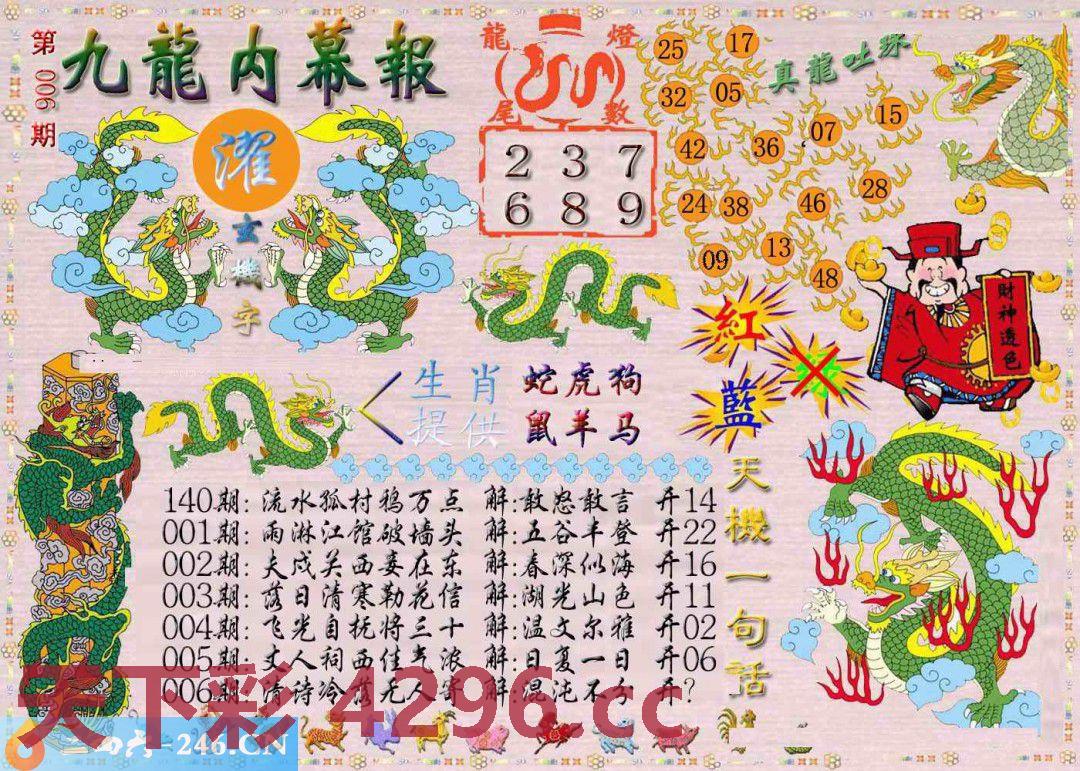 第006期
九龍内幕報
濯
玄機字
龍燈
尾數
2 3 7
6 8 9
25 17
32 05
真龍吐珠
42 36 07 15
24 38 46 28
09 13 48
紅
藍
財神透色
生肖
提供
蛇虎狗
鼠羊马
天機一句话
140期:流水孤村鸦万点 解:敢怒敢言 开14
001期:雨淋江馆破墙头 解:五谷丰登 开22
002期:夫戍关西妾在东 解:春深似海 开16
003期:落日清寒勒花信 解:湖光山色 开11
004期:飞光自抚将三十 解:温文尔雅 开02
005期:丈人祠西佳气浓 解:日复一日 开06
006期:清诗冷落无人寄 解:混沌不分 开?
天下彩 4296.cc
=246.CN